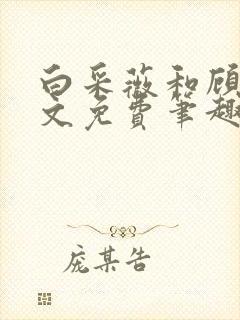 白采薇和顾
文免费笔趣
庞某告